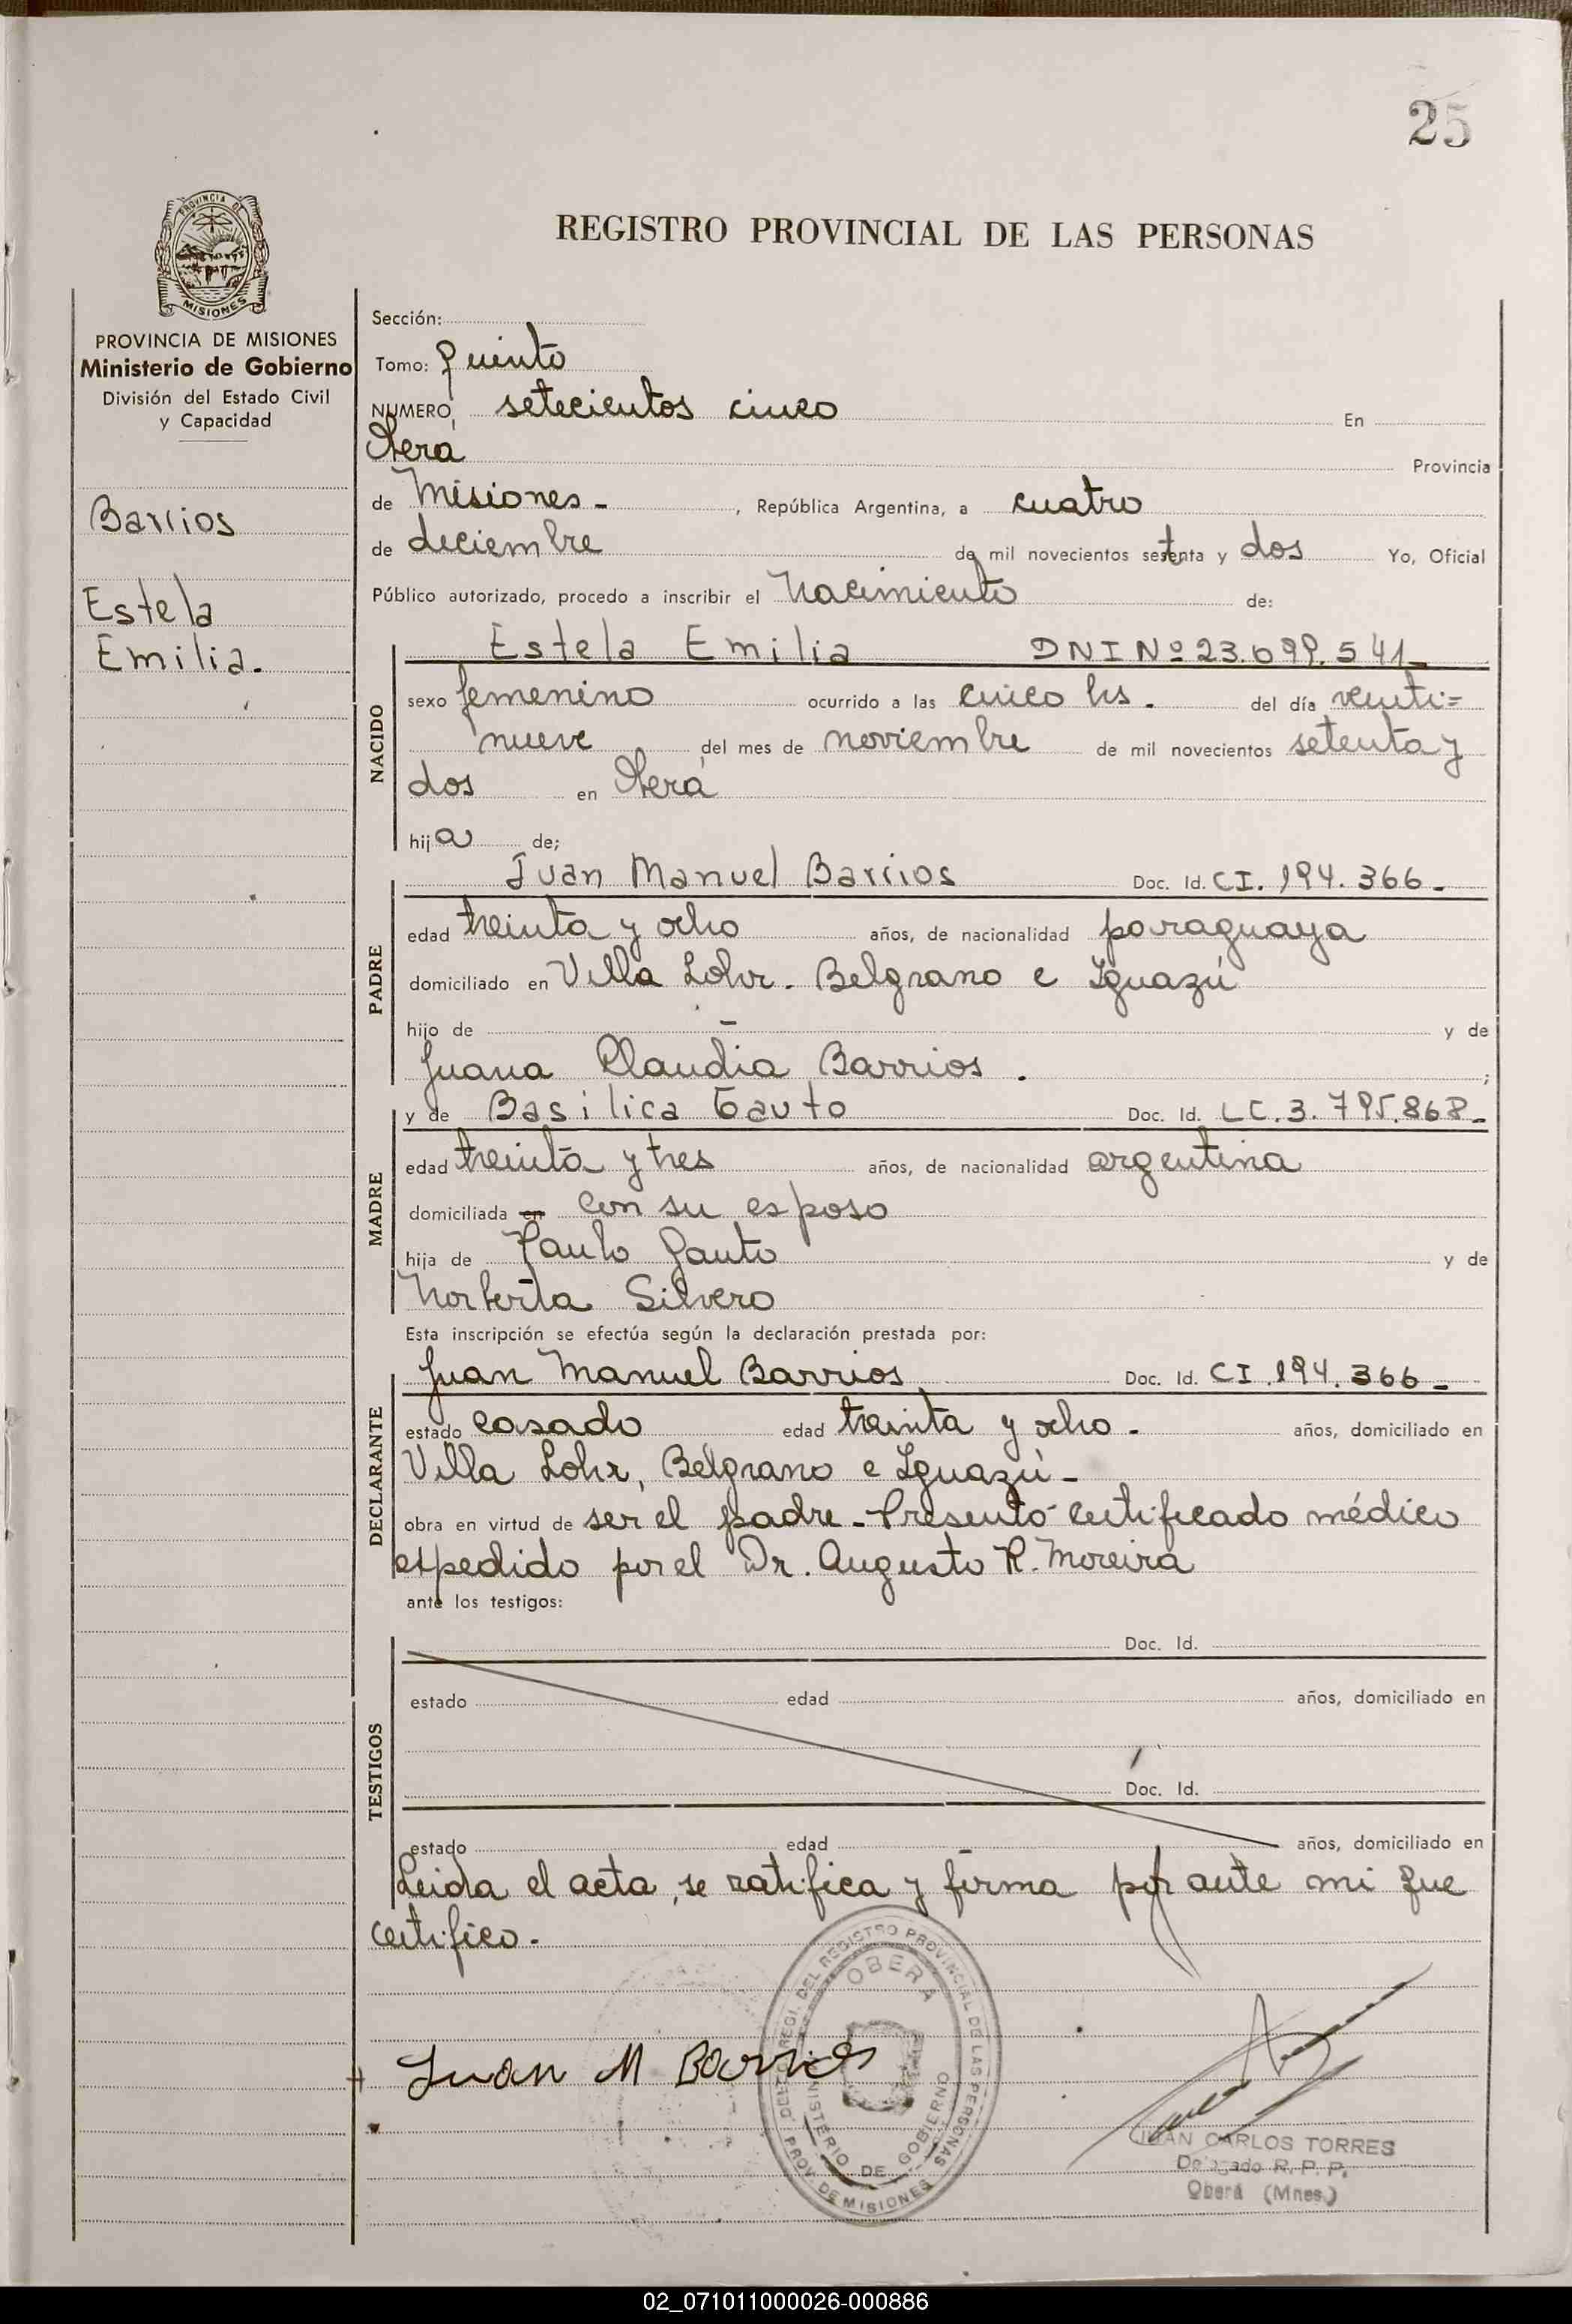 25
REGISTRO PROVINCIAL DE LAS PERSONAS
PROVINCIA DE MISIONES
PROVINCIA DE MISIONES
Ministerio de Gobierno
División del Estado Civil
y Capacidad
Barrios
Estela
Emilia.
Sección:
Tomo: Quinto
NUMERO, setecientos cinco En
Oberá Provincia
de Misiones - , República Argentina, a cuatro
de deciembre de mil novecientos setenta y dos Yo, Oficial
Público autorizado, procedo a inscribir el Nacimiento de:
NACIDO
Estela Emilia DNI Nº 23.099.541-
sexo femenino ocurrido a las cinco hs. del día venti=
nueve del mes de noviembre de mil novecientos setenta y
dos en Oberá
hija de;
PADRE
Juan Manuel Barrios Doc. Id. CI. 194.366-
edad treinta y ocho años, de nacionalidad paraguaya
domiciliado en Villa Lohr. Belgrano e Iguazú
hijo de - y de
Juana Claudia Barrios . ;
MADRE
y de Basilica Gauto Doc. Id. LC. 3.795.868-
edad treinta y tres años, de nacionalidad argentina
domiciliada en con su esposo
hija de Paulo Gauto y de
Norberta Silvero
Esta inscripción se efectúa según la declaración prestada por:
DECLARANTE
Juan Manuel Barrios Doc. Id. CI. 194.366-
estado casado edad treinta y ocho - años, domiciliado en
Villa Lohr, Belgrano e Iguazú -
obra en virtud de ser el padre - Presentó certificado médico
expedido por el Dr. Augusto R. Moreira
ante los testigos:
TESTIGOS
Doc. Id.
estado edad años, domiciliado en
Doc. Id.
estado edad años, domiciliado en
Leida el acta, se ratifica y firma por ante mi que
certifico -
Juan M Barrios
OBERA
MINISTERIO DE GOBIERNO
PROV. DE MISIONES
REGISTRO PROVINCIAL DE LAS PERSONAS
JUAN CARLOS TORRES
Delegado R. P. P.
Oberá (Mnes.)
02_071011000026-000886